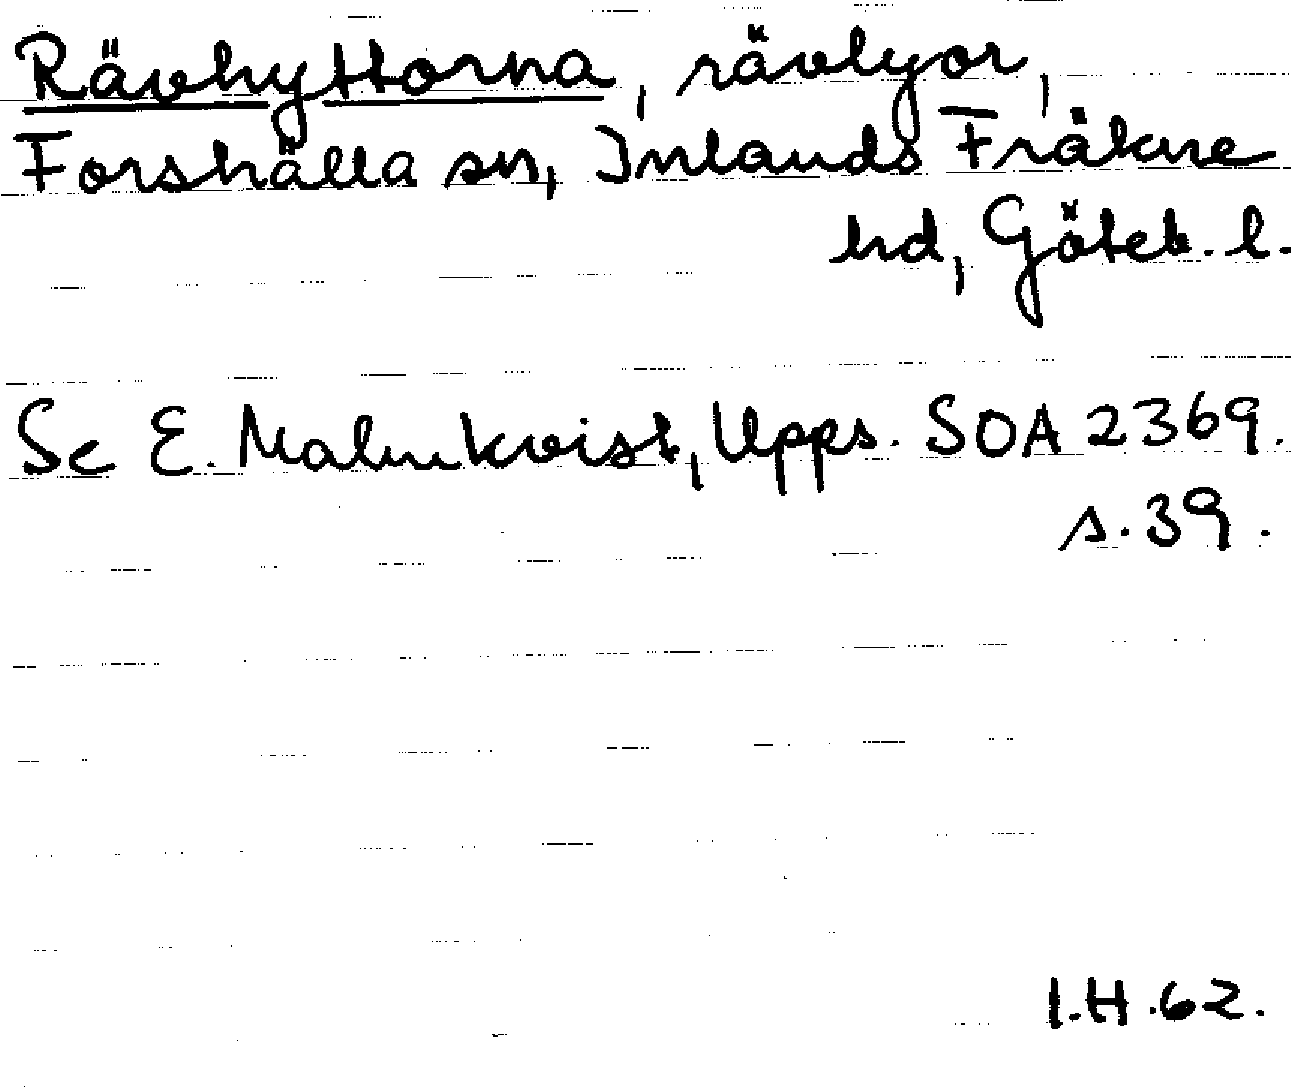 Rävhyttorna, rävlyor,
Forshälla sn, Inlands Fräkne
hd, Göteb. l.
Se E. Malmkvist, Upps. SOA 2369.
s. 39.
I.H.62.